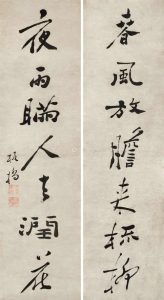 春風放膽來梳柳
夜雨瞞人去潤花
板橋